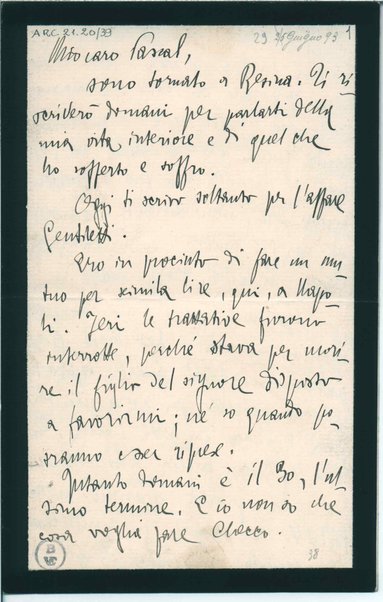 ARC.21.20/39
29 Giugno 93
1
Mio caro Pascal,
sono tornato a Resina. Ti ri
scriverò domani per parlarti della
mia vita interiore e di quel che
ho sofferto e soffro.
Oggi ti scrivo soltanto per l'affare
Gentiletti.
Ero in procinto di fare un mu
tuo per seimila lire, qui, a Napo
li. Ieri le trattative furono
interrotte, perché stava per mori
re il figlio del signore disposto
a favorirmi; né so quando po
tranno esser riprese.
Intanto domani è il 30, l'ul
timo termine. E io non so che
cosa voglia fare Checco.
38